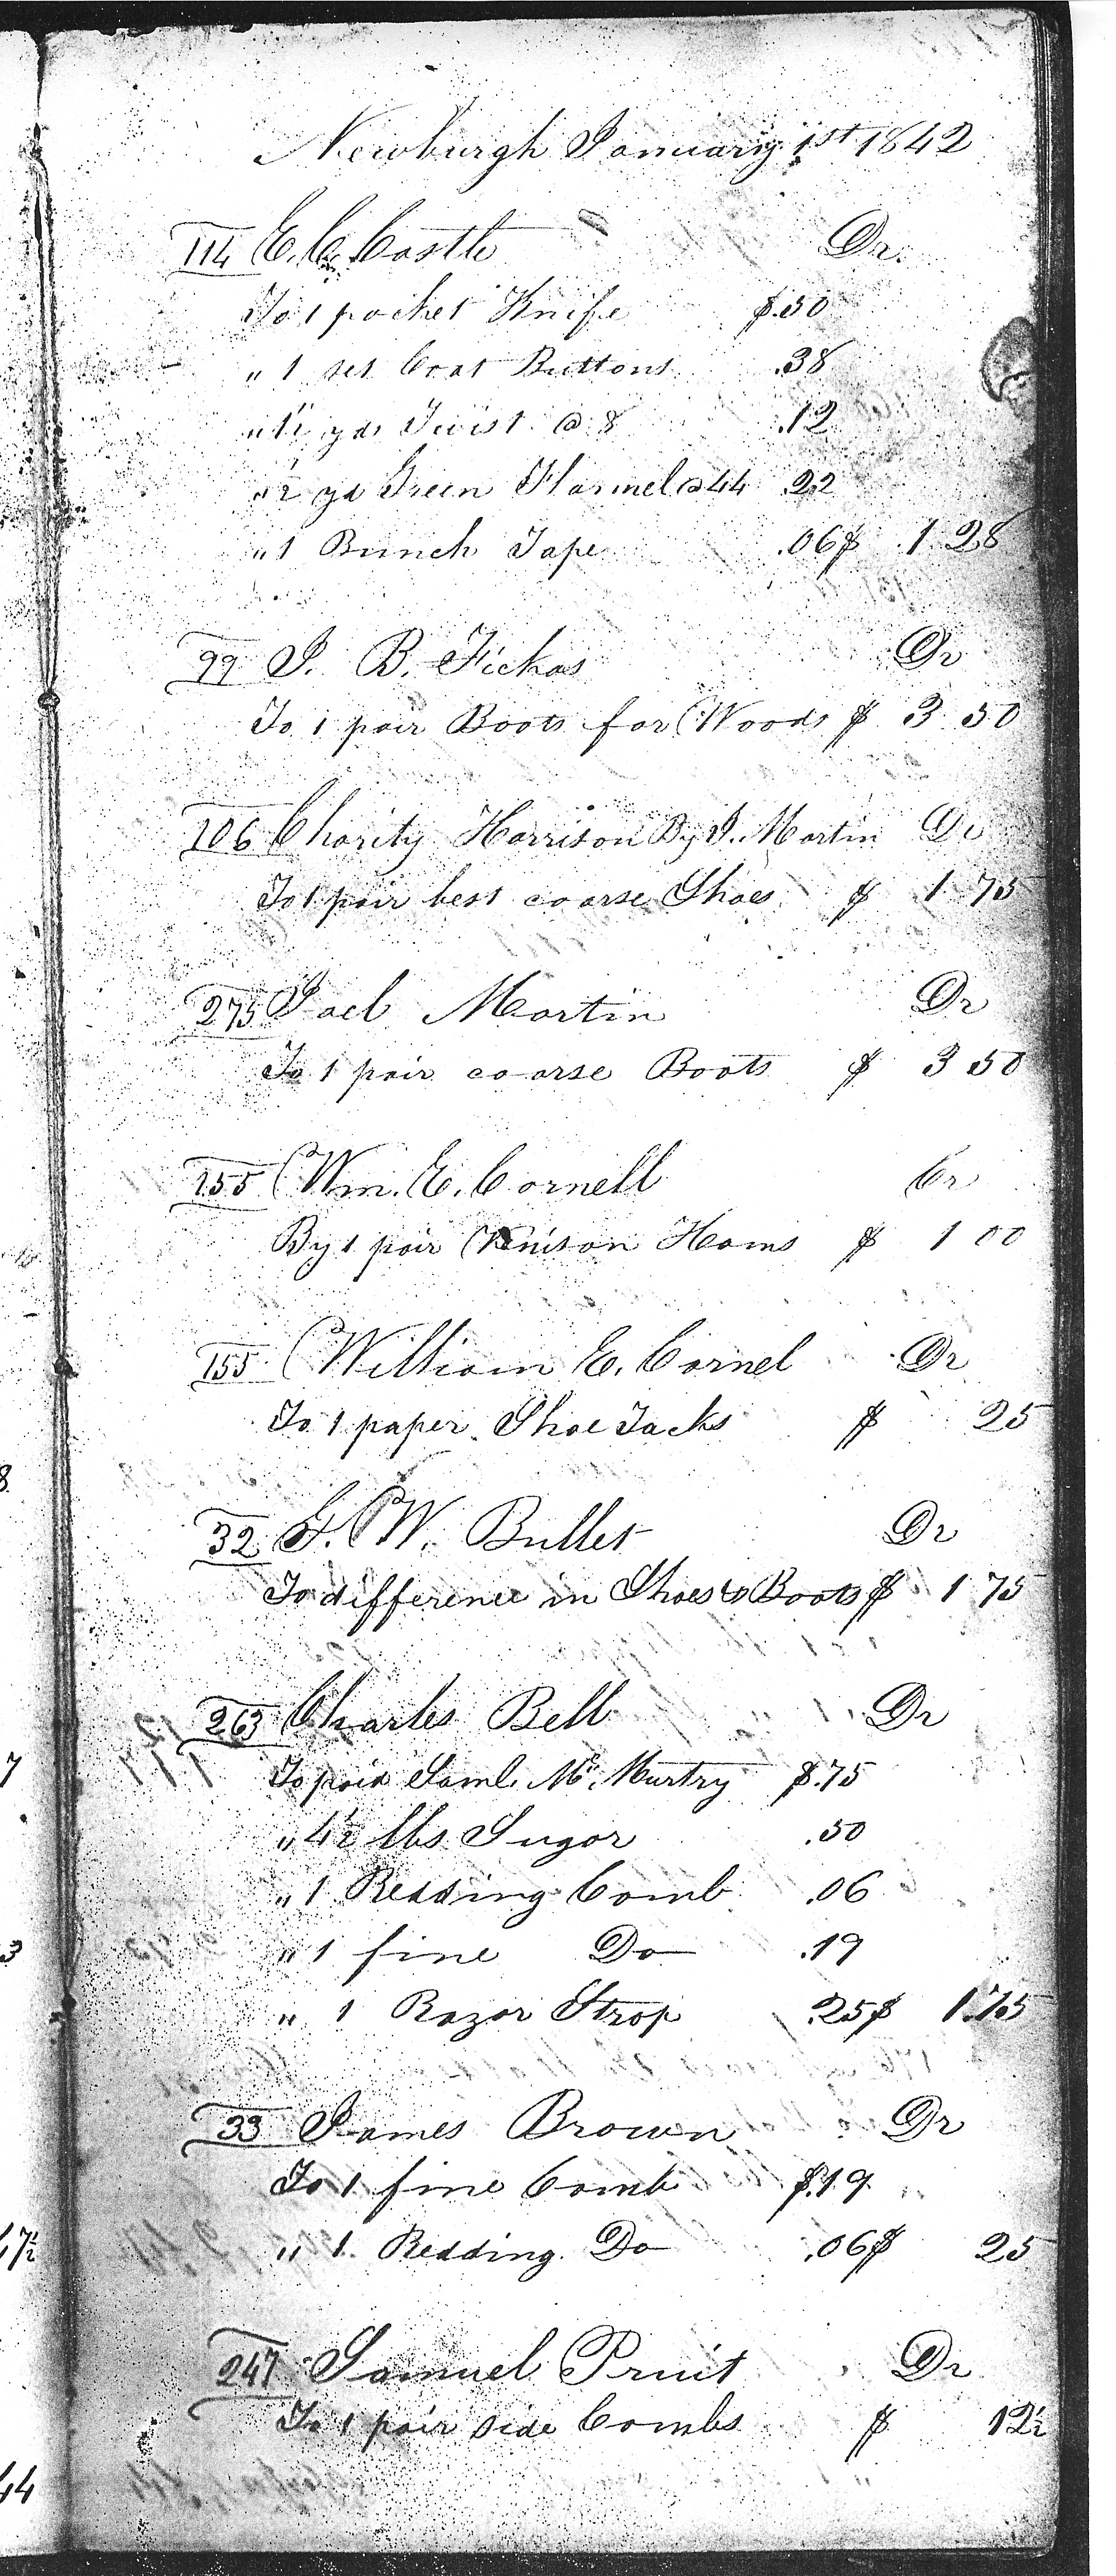 Newburgh January 1st 1842
114 E. C. Castle Dr.
To 1 pocket Knife $.50
" 1 set Coat Buttons .38
" 1½ yds Twist @ 8 .12
" ½ yd Green Flannel @ 44 .22
" 1 Bunch Tape .06 $ 1.28
99 J. B. Fickas Dr
To 1 pair Boots for Woods $ 3 50
106 Charity Harrison By J. Martin Dr
To 1 pair best coarse Shoes $ 1 75
275 Joel Martin Dr
To 1 pair coarse Boots $ 3 50
155 Wm. E. Cornell Cr
By 1 pair Venison Hams $ 1 00
155 William E. Cornel Dr
To 1 paper Shoe Tacks $ 25
32 G. W. Bullet Dr
To difference in Shoes & Boots $ 1 75
263 Charles Bell Dr
To paid Saml. Mc.Murtry $.75
" 4½ lbs Sugar .50
" 1 Redding Comb .06
" 1 fine Do .19
" 1 Razor Strop .25 $ 1.75
33 James Brown Dr
To 1 fine Comb $.19
" 1 Redding Do .06 $ 25
247 Samuel Pruit Dr
To 1 pair side Combs $ 12½
8
7
3
17½
44